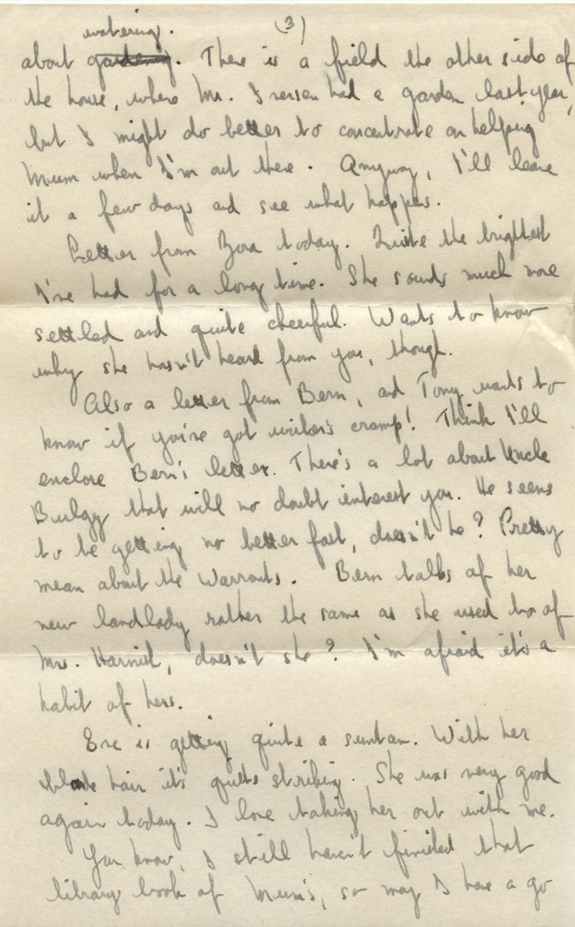 (3)
watering.
about gardening. There is a field the other side of
the house, where Mr. Iversen had a garden last year,
but I might do better to concentrate on helping
Mum when I'm out there. Anyway, I'll leave
it a few days and see what happens.
Letter from Zora today. Quite the brightest
I've had for a long time. She sounds much more
settled and quite cheerful. Wants to know
why she hasn't heard from you, though.
Also a letter from Bern, and Tony wants to
know if you've got writer's cramp! Think I'll
enclose Bern's letter. There's a lot about Uncle
that will no doubt interest you. He seems
to be getting no better fast, doesn't he? Pretty
mean about the Warrants. Bern talks of her
new landlady rather the same as she used to of
Mrs. , doesn't she? I'm afraid it's a
habit of hers.
Eve is getting quite a suntan. With her
blonde hair it's quite striking. She was very good
again today. I love taking her out with me.
You know, I still haven't finished that
library book of Mum's, so may I have a go